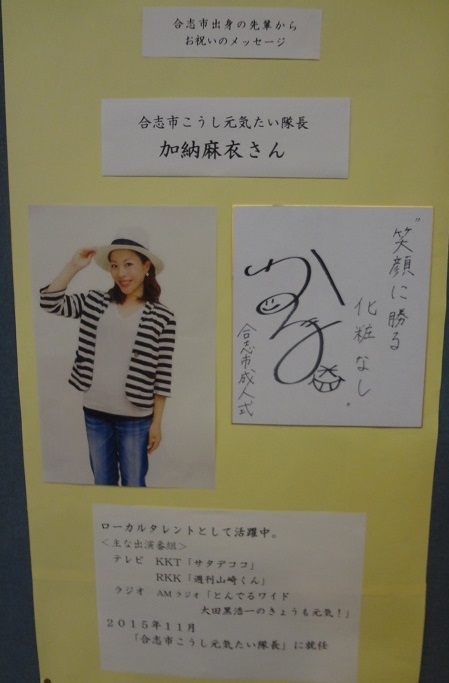 合志市出身の先輩から
お祝いのメッセージ
合志市こうし元気たい隊長
加納麻衣さん
〝笑顔に勝る
化粧なし〟
合志市成人式
ローカルタレントとして活躍中。
＜主な出演番組＞
テレビ KKT「サタデココ」
RKK「週刊山崎くん」
ラジオ AMラジオ「とんでるワイド
大田黒浩一のきょうも元気！」
２０１５年１１月
「合志市こうし元気たい隊長」に就任